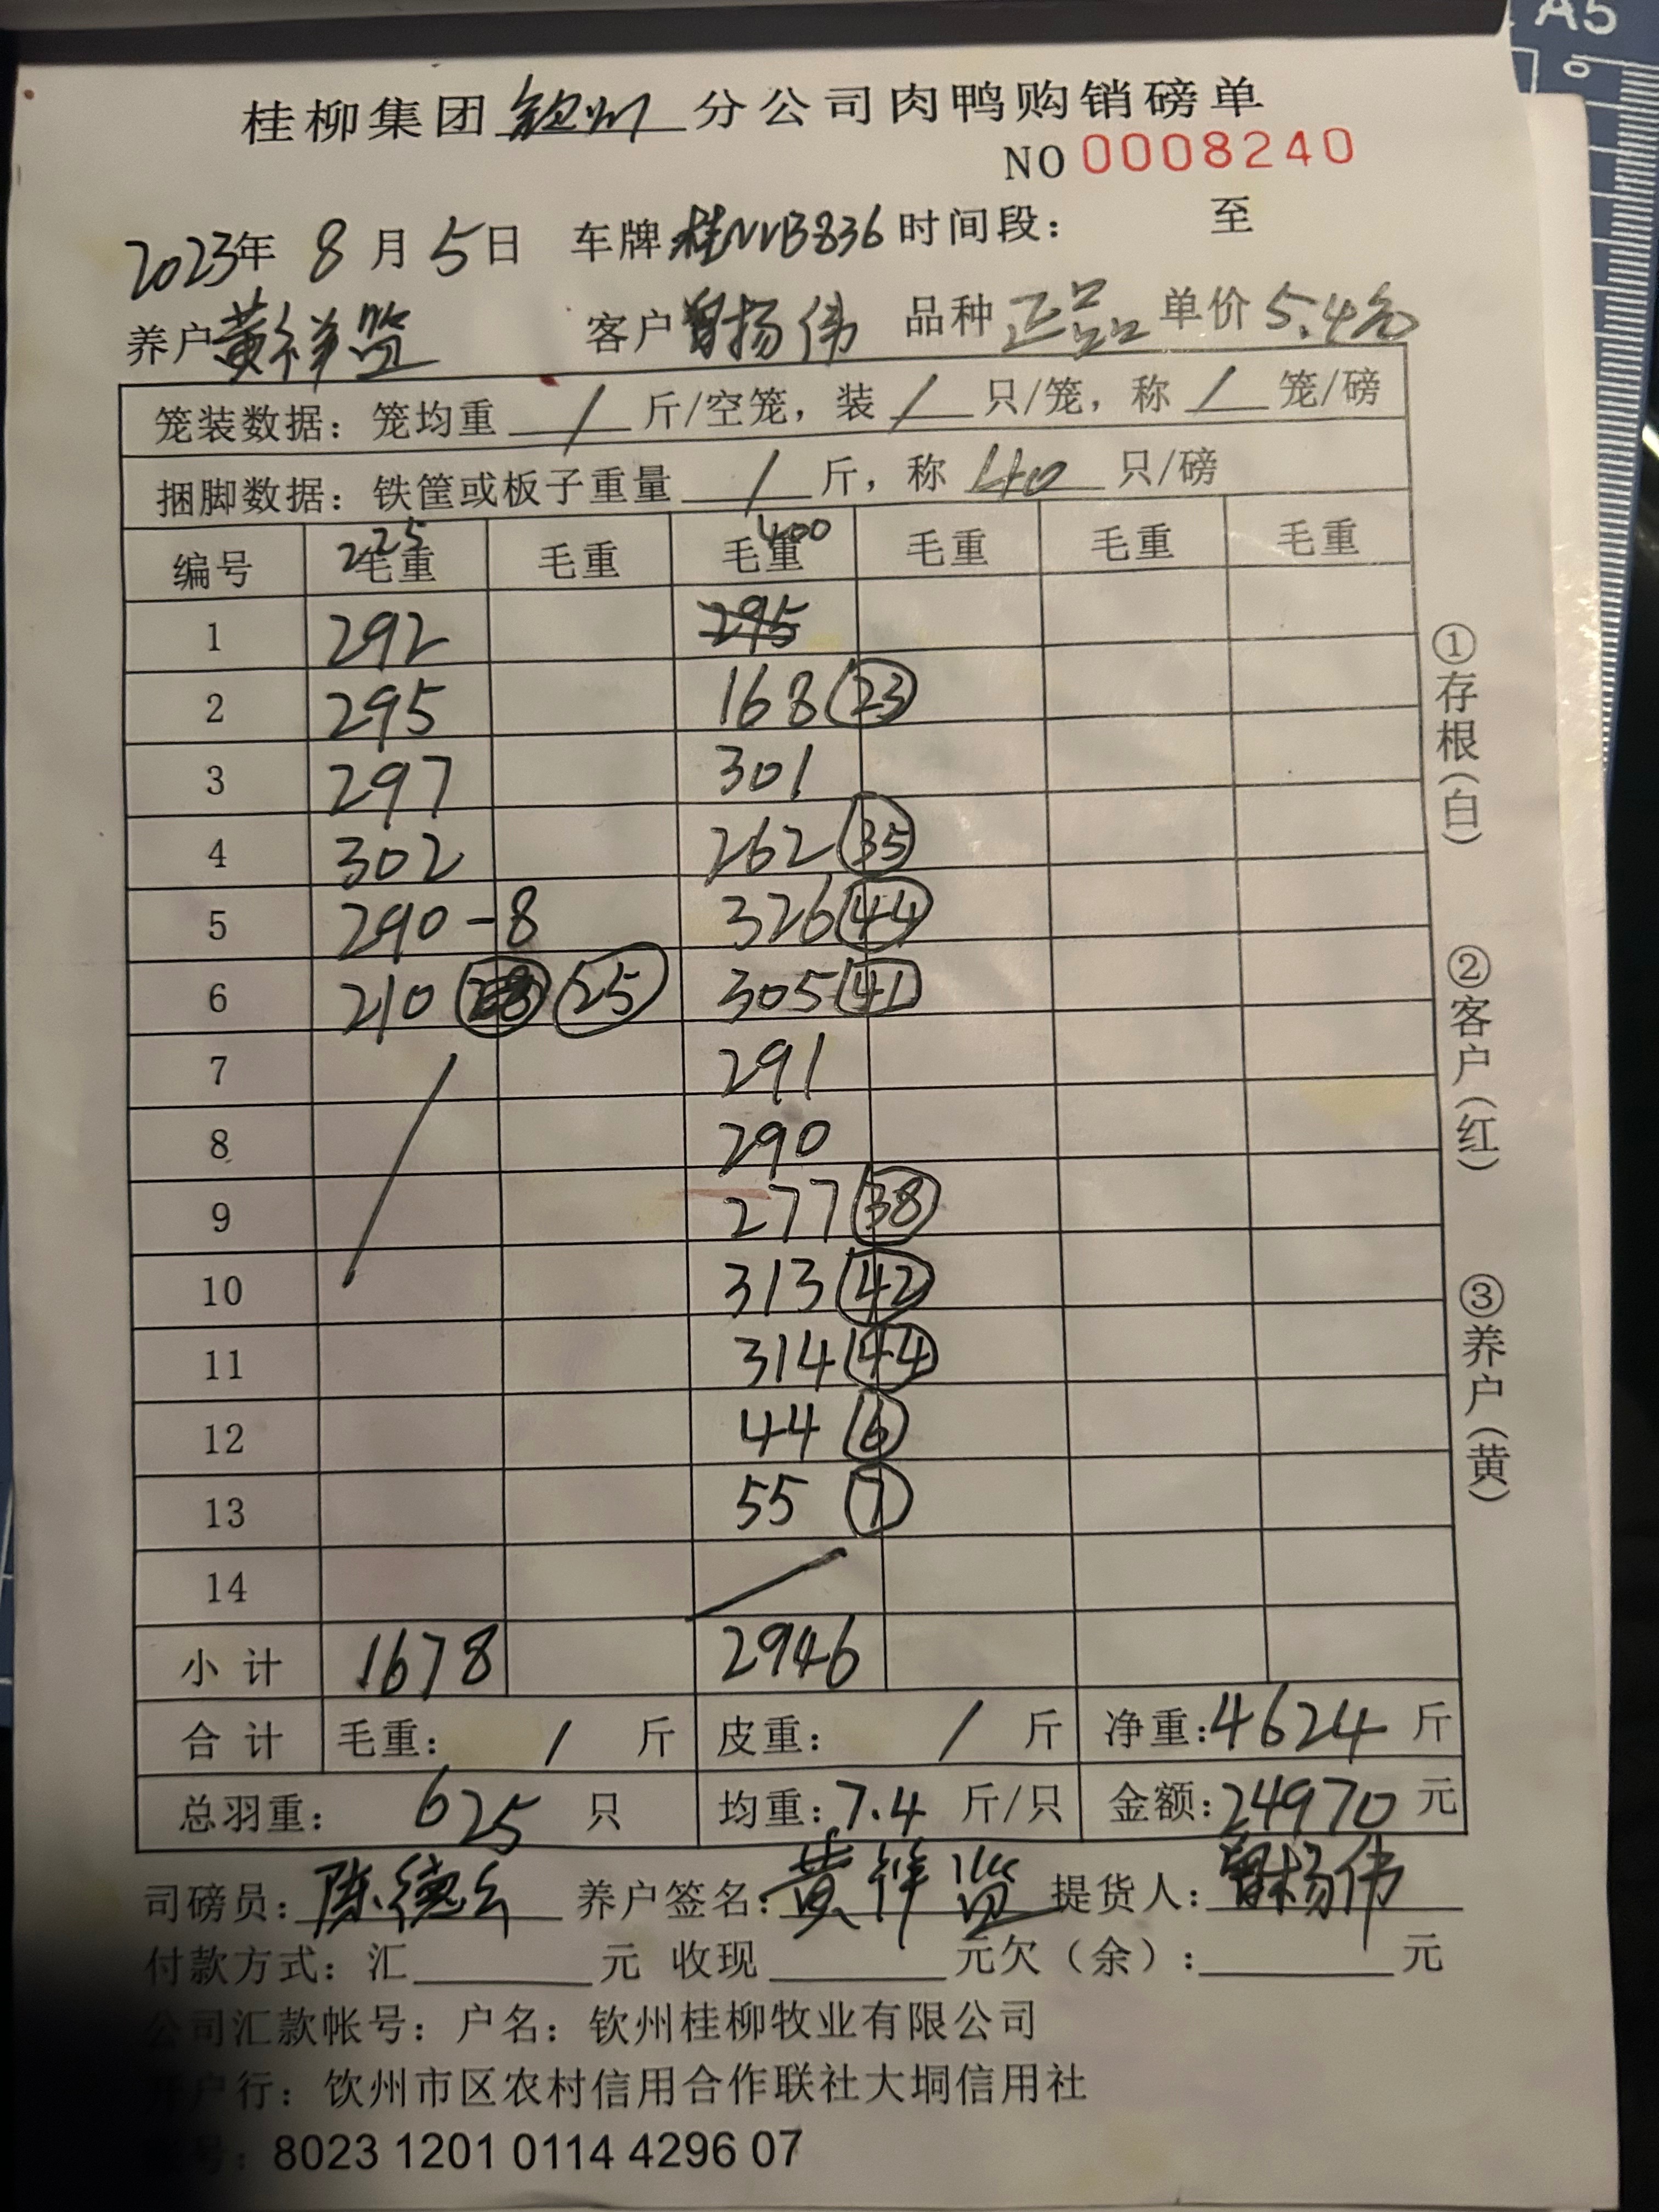 A5
桂柳集团钦州分公司肉鸭购销磅单
NO 0008240
2023年 8月5日 车牌:桂NVB836 时间段: 至
养户黄祥 客户曾扬伟 品种正品 单价5.4
笼装数据:笼均重 / 斤/空笼,装 / 只/笼,称 / 笼/磅
捆脚数据:铁筐或板子重量 / 斤,称 40 只/磅
225 400
编号 毛重 毛重 毛重 毛重 毛重 毛重
1 292 295
2 295 168 23
3 297 301
4 302 262 35
5 290-8 326 44
6 210 25 305 41
7 291
8 290
9 277 38
10 313 42
11 314 44
12 44 6
13 55 7
14
小计 1678 2946
合计 毛重: / 斤 皮重: / 斤 净重:4624 斤
总羽重: 625 只 均重:7.4 斤/只 金额:24970 元
司磅员:陈德 养户签名:黄祥 提货人:曾扬伟
付款方式:汇 元 收现 元欠(余): 元
公司汇款帐号:户名:钦州桂柳牧业有限公司
开户行:钦州市区农村信用合作联社大垌信用社
号:8023 1201 0114 4296 07
①存根(白)
②客户(红)
③养户(黄)